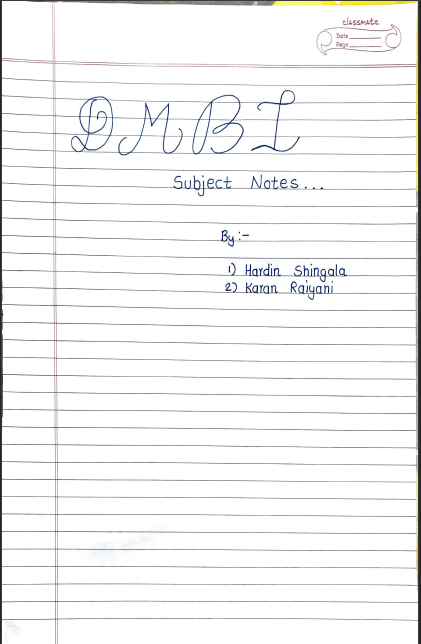 classmate
Date
Page
DMBI
Subject Notes...
By:-
1) Hardin Shingala
2) Karan Raiyani